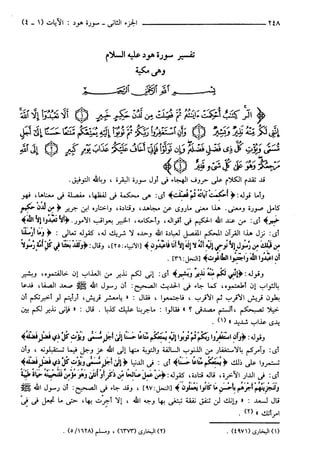 ٢٤٨ الجزء الثانى - سورة هود : الآيات (١ - ٤)
تفسير سورة هود عليه السلام
وهى مكية
بسم الله الرحمن الرحيم
﴿ الٓر كِتَٰبٌ أُحۡكِمَتۡ ءَايَٰتُهُۥ ثُمَّ فُصِّلَتۡ مِن لَّدُنۡ حَكِيمٍ خَبِيرٍ ۝ أَلَّا تَعۡبُدُوٓاْ إِلَّا ٱللَّهَۚ
إِنَّنِي لَكُم مِّنۡهُ نَذِيرٞ وَبَشِيرٞ ۝ وَأَنِ ٱسۡتَغۡفِرُواْ رَبَّكُمۡ ثُمَّ تُوبُوٓاْ إِلَيۡهِ يُمَتِّعۡكُم مَّتَٰعًا حَسَنًا إِلَىٰٓ أَجَلٖ
مُّسَمّٗى وَيُؤۡتِ كُلَّ ذِي فَضۡلٖ فَضۡلَهُۥۖ وَإِن تَوَلَّوۡاْ فَإِنِّيٓ أَخَافُ عَلَيۡكُمۡ عَذَابَ يَوۡمٖ كَبِيرٍ ۝ إِلَى ٱللَّهِ
مَرۡجِعُكُمۡۖ وَهُوَ عَلَىٰ كُلِّ شَيۡءٖ قَدِيرٌ ۝ ﴾
قد تقدم الكلام على حروف الهجاء فى أول سورة البقرة ، وبالله التوفيق.
وأما قوله: ﴿أُحْكِمَتْ آيَاتُهُ ثُمَّ فُصِّلَتْ﴾ أى: هى محكمة فى لفظها، مفصلة فى معناها، فهو
كامل صورة ومعنى. هذا معنى ما روى عن مجاهد، وقتادة، واختاره ابن جرير ﴿مِن لَّدُنْ حَكِيمٍ
خَبِيرٍ﴾ أى: من عند الله الحكيم فى أقواله، وأحكامه، الخبير بعواقب الأمور. ﴿أَلَّا تَعْبُدُوا إِلَّا اللَّهَ﴾
أى: نزل هذا القرآن المحكم المفصل لعبادة الله وحده لا شريك له، كقوله تعالى : ﴿ وَمَا أَرْسَلْنَا
مِن قَبْلِكَ مِن رَّسُولٍ إِلَّا نُوحِي إِلَيْهِ أَنَّهُ لَا إِلَٰهَ إِلَّا أَنَا فَاعْبُدُونِ ﴾[الأنبياء:٢٥]، وقال: ﴿وَلَقَدْ بَعَثْنَا فِي كُلِّ أُمَّةٍ رَّسُولًا
أَنِ اعْبُدُوا اللَّهَ وَاجْتَنِبُوا الطَّاغُوتَ﴾ [النحل:٣٦].
وقوله: ﴿إِنَّنِي لَكُم مِّنْهُ نَذِيرٌ وَبَشِيرٌ﴾ أى: إنى لكم نذير من العذاب إن خالفتموه، وبشير
بالثواب إن أطعتموه، كما جاء فى الحديث الصحيح: أن رسول الله ﷺ صعد الصفا، فدعا
بطون قريش الأقرب ثم الأقرب ، فاجتمعوا ، فقال : « يا معشر قريش، أرأيتم لو أخبرتكم أن
خيلا تصبحكم ، ألستم مصدقى ؟ » فقالوا : ما جربنا عليك كذبا . قال : « فإنى نذير لكم بين
يدى عذاب شديد » (١) .
وقوله: ﴿وَأَنِ اسْتَغْفِرُوا رَبَّكُمْ ثُمَّ تُوبُوا إِلَيْهِ يُمَتِّعْكُم مَّتَاعًا حَسَنًا إِلَىٰ أَجَلٍ مُّسَمًّى وَيُؤْتِ كُلَّ ذِي فَضْلٍ فَضْلَهُ﴾
أى: وآمركم بالاستغفار من الذنوب السالفة والتوبة منها إلى الله عز وجل فيما تستقبلونه ، وأن
تستمروا على ذلك ﴿يُمَتِّعْكُم مَّتَاعًا حَسَنًا﴾ أى : فى الدنيا ﴿إِلَىٰ أَجَلٍ مُّسَمًّى وَيُؤْتِ كُلَّ ذِي فَضْلٍ فَضْلَهُ﴾
أى: فى الدار الآخرة، قاله قتادة، كقوله: ﴿مَنْ عَمِلَ صَالِحًا مِّن ذَكَرٍ أَوْ أُنثَىٰ وَهُوَ مُؤْمِنٌ فَلَنُحْيِيَنَّهُ حَيَاةً طَيِّبَةً
وَلَنَجْزِيَنَّهُمْ أَجْرَهُم بِأَحْسَنِ مَا كَانُوا يَعْمَلُونَ ﴾ [النحل:٩٧] ، وقد جاء فى الصحيح: أن رسول الله ﷺ
قال لسعد : « وإنك لن تنفق نفقة تبتغى بها وجه الله ، إلا أجرت بها، حتى ما تجعل فى فىّ
امرأتك » (٢) .
(١) البخارى (٤٩٧١) . (٢) البخارى (٦٣٧٣) ، ومسلم (١٦٢٨/ ٥) .